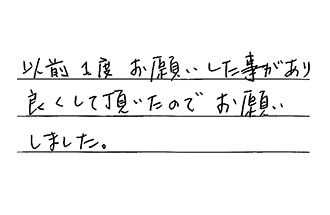 以前1度お願いした事があり
良くして頂いたのでお願い
しました。